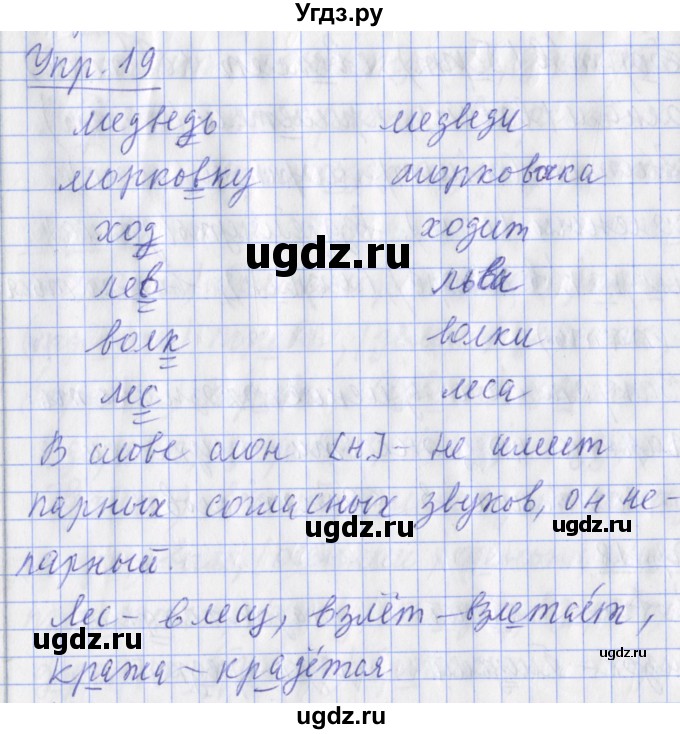 Угдз.ру
Упр. 19
медведь медведи
морковку морковка
ugdz.ru
ход ходит
лев льва
волк волки
лес леса
В слове слон [н] – не имеет
парных согласных звуков, он не-
ugdz.ru ugdz.ru
парный.
Лес – в лесу, взлёт – взлетает,
ugdz.ru ugdz.ru
кража – крадётся
ugdz.ru